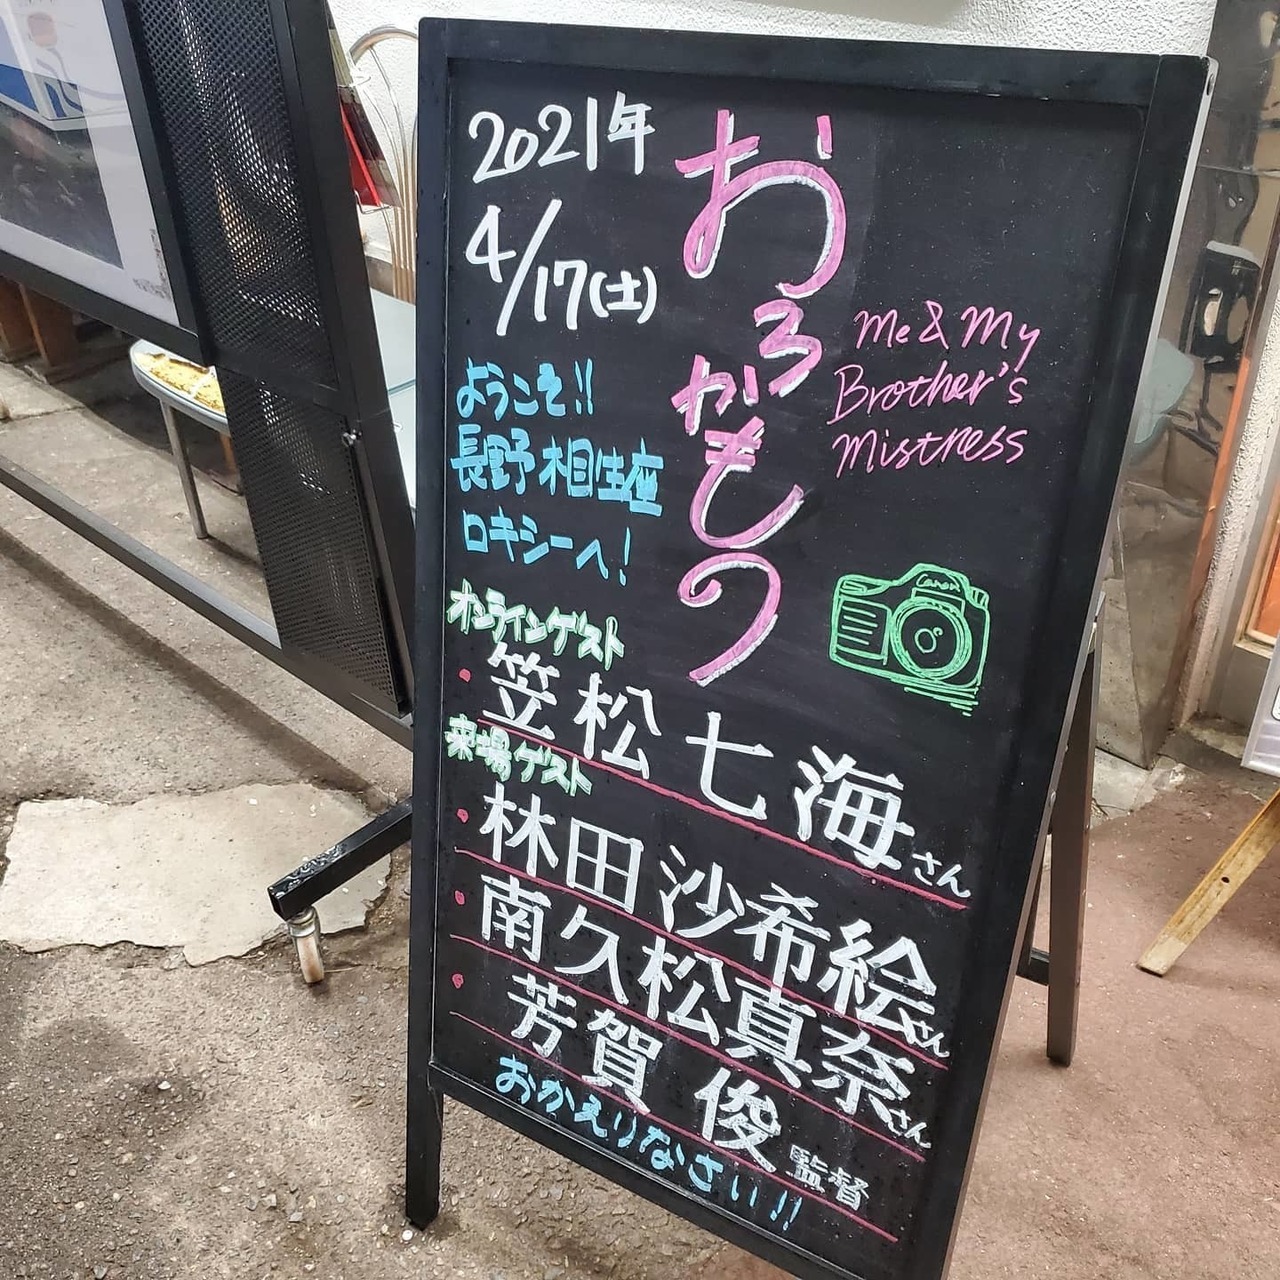 おろかもの
Me & My
Brother's
Mistress
2021年
4/17(土)
ようこそ!!
長野相生座
ロキシーへ!
Canon
オンラインゲスト
・笠松七海さん
来場ゲスト
・林田沙希絵さん
・南久松真奈さん
・芳賀俊監督
おかえりなさい!!